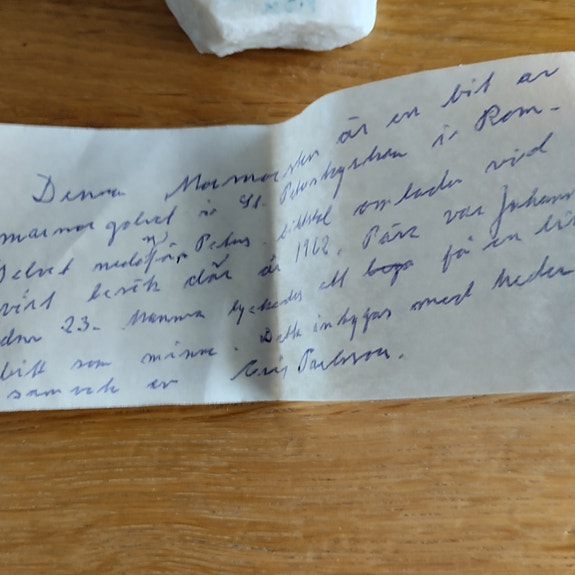 Denna Marmorsten är en bit av
marmorgolvet i St. Peterskyrkan i Rom.
Golvet nedanför Petrus omlades vid
vårt besök där år 1962. Påve var Johann
den 23. Mamma lyckades att få en lit
bit som minne. Detta intygas med heder
samvete av